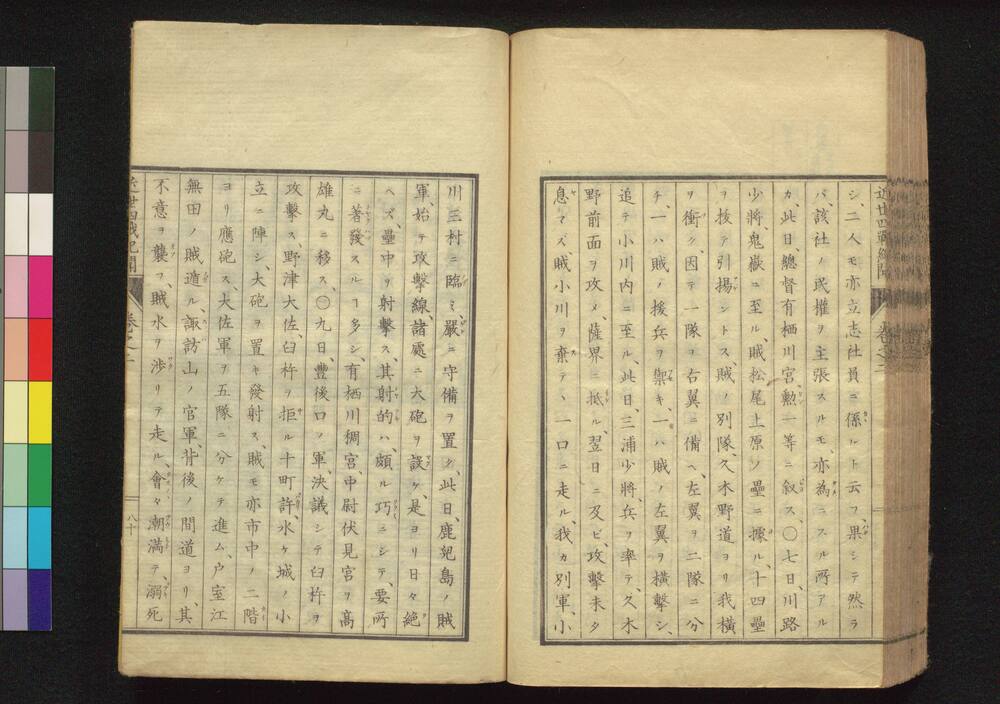 シ、二人モ亦立志社員ニ係ルト云フ、果シテ然ラ
バ、該社ノ民權ヲ主張スルモ、亦為ニスル所アル
カ、此日、總督有栖川宮、勲一等ニ叙ス、〇七日、川路
少將、鬼嶽ニ至ル、賊松尾上原ノ壘ニ據ル、十四壘
ヲ拔テ引揚ントス、賊ノ別隊、久木野道ヨリ我横
ヲ衝ク、因テ一隊ヲ右翼ニ備ヘ、左翼ヲ二隊ニ分
チ、一ハ賊ノ援兵ヲ禦キ、一ハ賊ノ左翼ヲ横擊シ、
追テ小川内ニ至ル、此日、三浦少將、兵ヲ率テ、久木
野前面ヲ攻メ、薩界ニ抵ル、翌日ニ及ビ、攻擊未タ
息マズ、賊小川ヲ棄テ、一口ニ走ル、我カ別軍、小
川三村ニ臨ミ、嚴ニ守備ヲ置ク、此日、鹿兒島ノ賊
軍、始テ攻擊線、諸處ニ大砲ヲ設ケ、是ヨリ日々絶
ヘズ、壘中ヲ射擊ス、其射的ハ、頗ル巧ニシテ、要所
ニ著發スルヿ多シ、有栖川稠宮、中尉伏見宮ヲ高
雄丸ニ移ス、〇九日、豐後口ノ軍、決議シテ臼杵ヲ
攻擊ス、野津大佐、臼杵ヲ拒ル十町許、水ケ城ノ小
立ニ陣シ、大砲ヲ置キ發射ス、賊モ亦市中ノ二階
ヨリ應砲ス、大佐軍ヲ五隊ニ分ケテ進ム、户室江
無田ノ賊遁ル、諏訪山ノ官軍、背後ノ間道ヨリ、其
不意ヲ襲フ、賊水ヲ渉リテ走ル、會々潮滿テ、溺死
八十